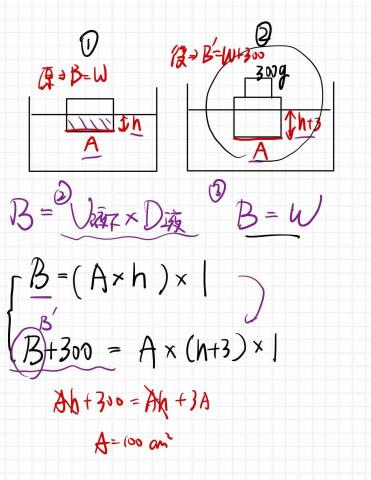 ①
②
原→B=W
後→B'=W+300
300g
h
A
h+3
A
B=②V液下×D液
③B=W
B=(A×h)×1
B'
B+300=A×(h+3)×1
Ah+300=Ah+3A
A=100 cm²